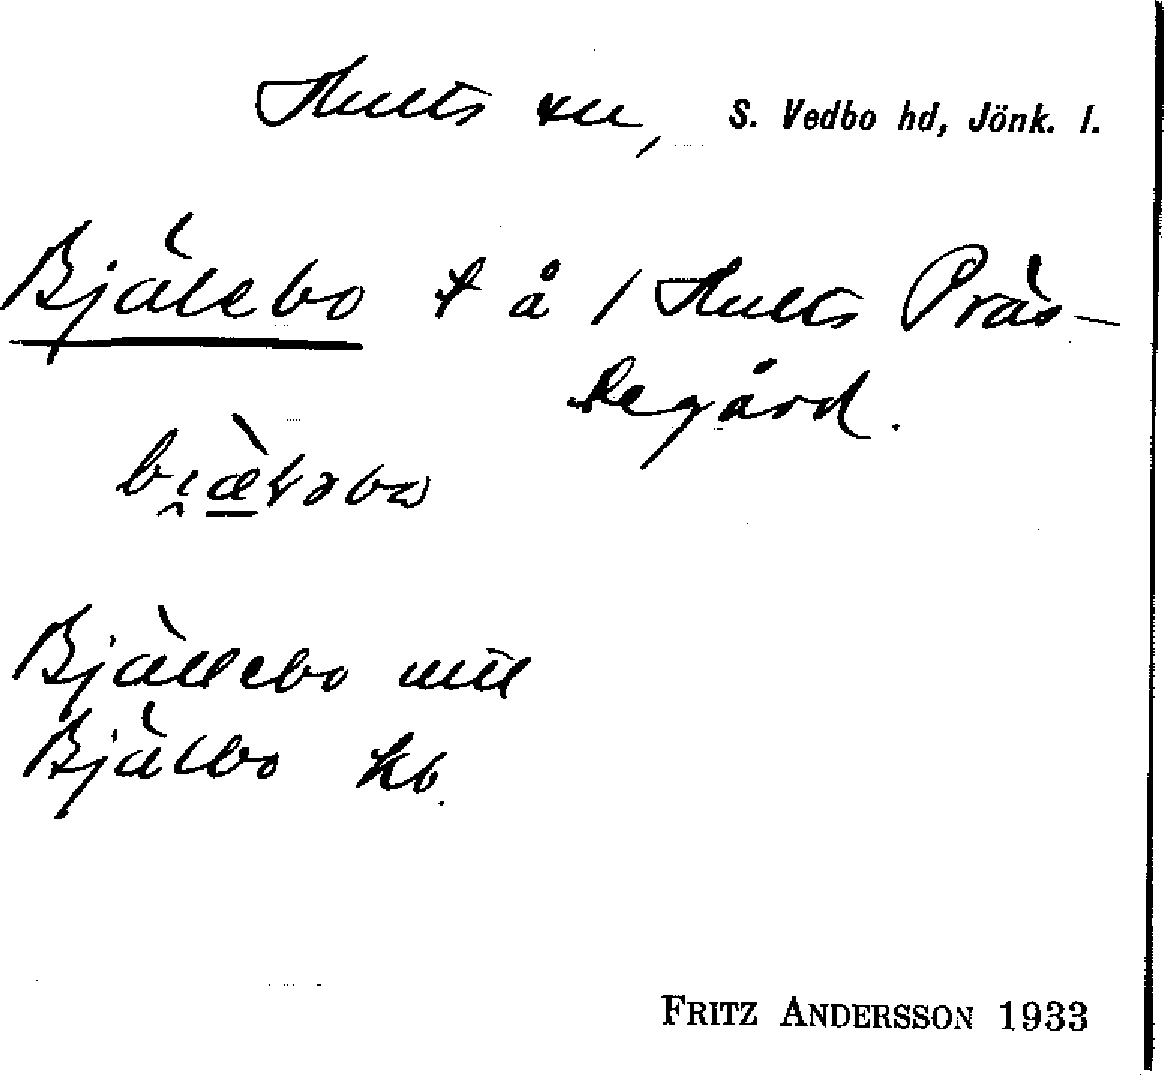 Hults sn, S. Vedbo hd, Jönk. l.
Bjälebo t å / Hults Präs-
tegård.
Bjällebo mtl
Bjälbo kb.
FRITZ ANDERSSON 1933